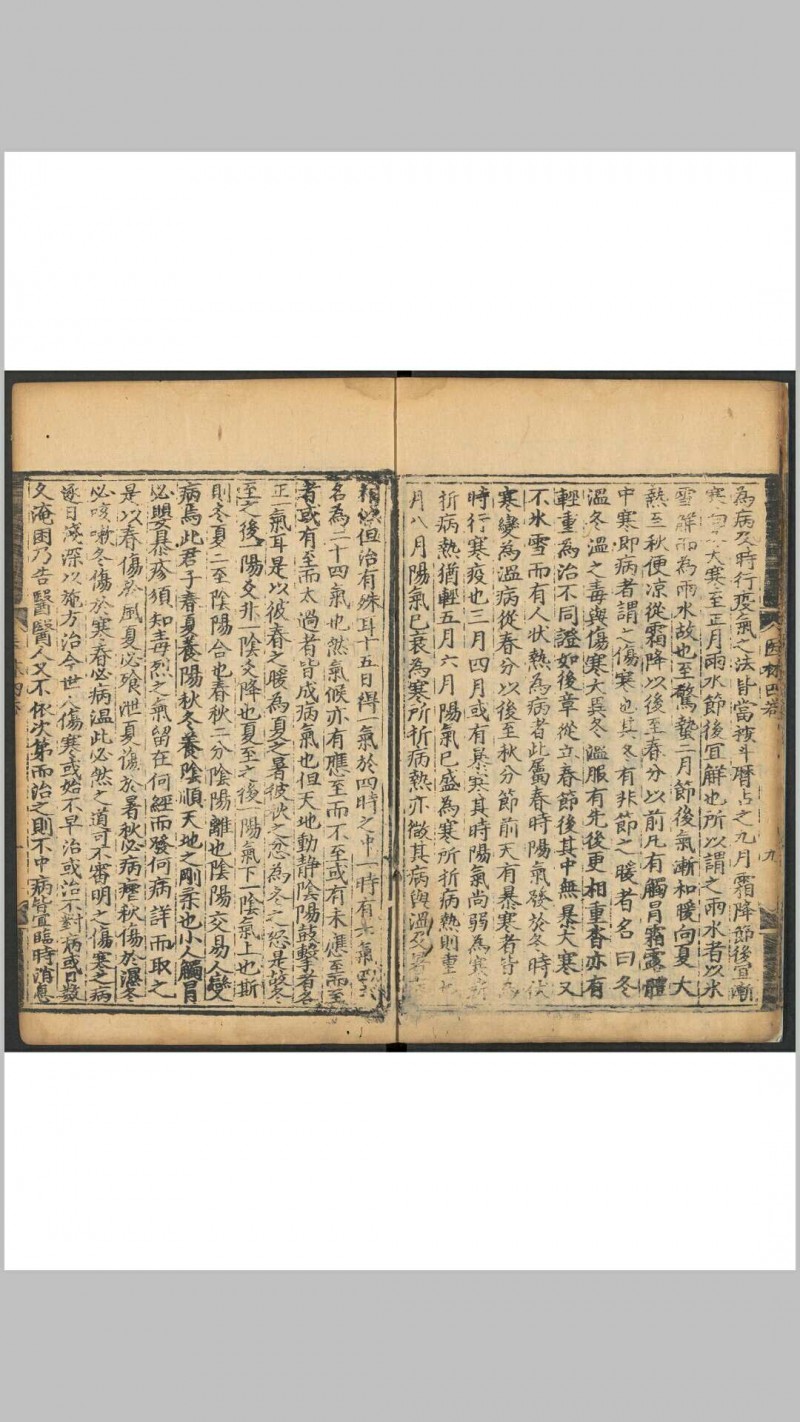 為病及時行疫氣之法皆當按斗曆占之九月霜降節後宜漸
寒向大寒至正月雨水節後宜解也所以謂之雨水者以氷
雪解而為雨水故也至驚蟄二月節後氣漸和暖向夏大
熱至秋便凉從霜降以後至春分以前凡有觸冐霜露體
中寒即病者謂之傷寒也其冬有非節之暖者名曰冬
溫冬溫之毒與傷寒大異冬溫服有先後更相重沓亦有
輕重為治不同證如後章從立春節後其中無暴大寒又
不氷雪而有人状熱為病者此屬春時陽氣發於冬時伏
寒變為溫病從春分以後至秋分節前天有暴寒者皆為
時行寒疫也三月四月或有暴寒其時陽氣尚弱為寒所
折病熱猶輕五月六月陽氣已盛為寒所折病熱則重七
月八月陽氣已衰為寒所折病熱亦微其病與溫及
相似但治有殊耳十五日得一氣於四時之中一時有六氣四六
名為二十四氣也然氣候亦有應至而不至或有未應至而至
者或有至而太過者皆成病氣也但天地動静陰陽鼓擊者各
正一氣耳是以彼春之暖為夏之暑彼秋之忿為冬之怒是故冬
至之後一陽爻升一陰爻降也夏至之後一陽氣下一陰氣上也斯
則冬夏二至陰陽合也春秋二分陰陽離也陰陽交易人變
病焉此君子春夏養陽秋冬養陰順天地之剛柔也小人觸冐
必嬰暴疹須知毒烈之氣留在何經而發何病詳而取之
是以春傷於風夏必飱泄夏傷於暑秋必病瘧秋傷於濕冬
必咳嗽冬傷於寒春必病温此必然之道可不審明之傷寒之病
逐日淺深以施方治今世人傷寒或始不早治或治不對病或日數
久淹困乃告醫醫人又不依次第而治之則不中病皆宜臨時消息
九